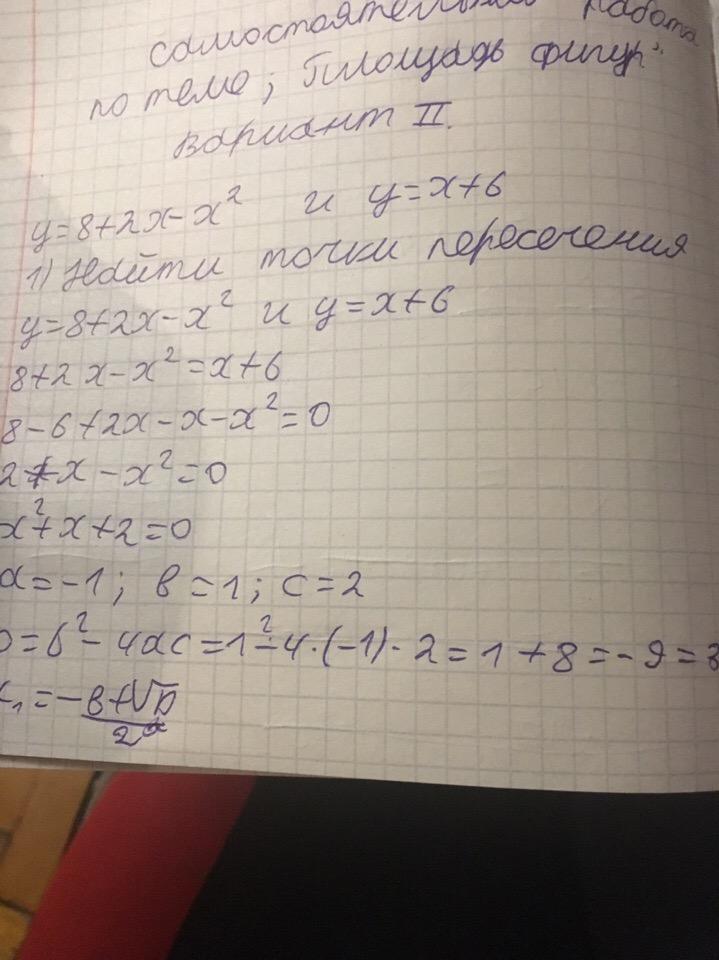 самостоятельная работа
по теме; "Площадь фигур"
вариант II.
y=8+2x-x² и y=x+6
1) Найти точки пересечения
y=8+2x-x² и y=x+6
8+2x-x²=x+6
8-6+2x-x-x²=0
2+x-x²=0
x²+x+2=0
a=-1; b=1; c=2
D=b²-4ac=1²-4·(-1)·2=1+8=-9=3
x₁=-b+√D/2a